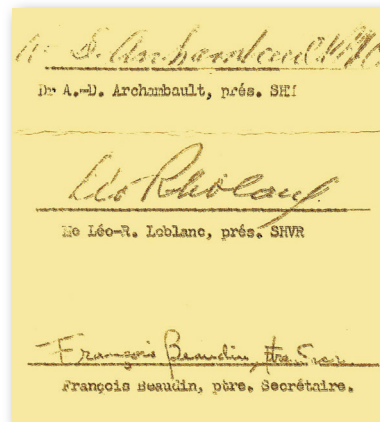 A. D. Archambault
Dr A.-D. Archambault, prés. SHM
Léo R Leblanc
Me Léo-R. Leblanc, prés. SHVR
François Beaudin, ptre
François Beaudin, ptre. Secrétaire.